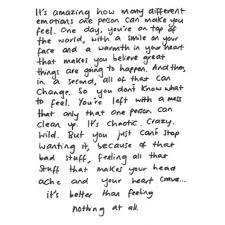 It's amazing how many different
emotions one person can make you
feel. One day, you're on top of
the world, with a smile on your
face and a warmth in your heart
that makes you believe great
things are going to happen. And then,
in a second, all of that can
Change. So you don't know what
to feel. You're left with a mess
that only that one person can
clean up. It's Chaotic. Crazy.
Wild. But you just can't stop
wanting it, because of that
bad stuff, feeling all that
Stuff that makes your head
ache and your heart crave...
it's better than feeling
nothing at all.